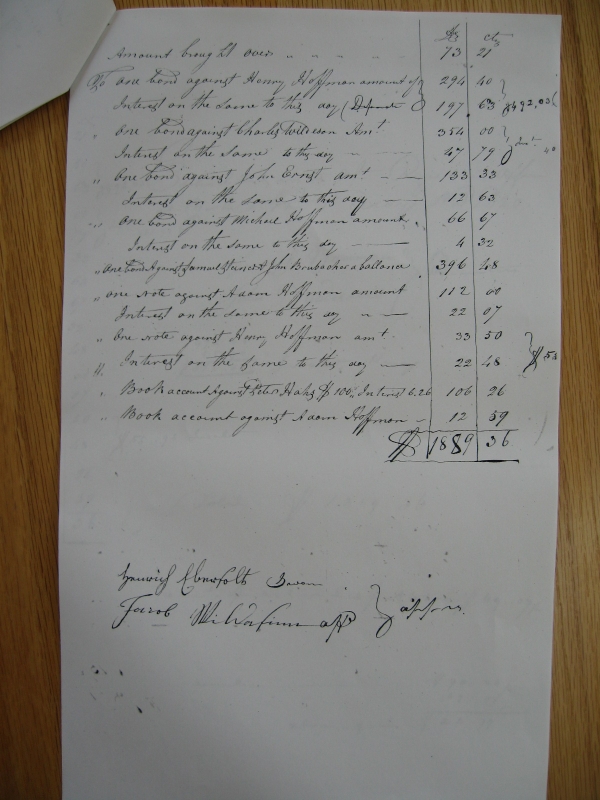 $ cts
Amount brought over " " " " 73 21
To One bond against Henry Hoffman amount of 294 40
Interest on the same to this day ( 197 63 $492,03
" One bond against Charles Amt 354 00
Interest on the same to this day " — 47 79
" One bond against John Ernst amt — — 133 33
Interest on the same to this day — — 12 63
" One bond against Michael Hoffman amount 66 67
Interest on the same to this day — — 4 32
" One bond Against Samuel & John Brubacher a ballance 396 48
" One note against Adam Hoffman amount 112 00
Interest on the same to this day " — 22 07
" One note against Henry Hoffman amt. 33 50
" Interest on the same to this day — 22 48
" Book account Against Peter $100, Interest 6.26 106 26
" Book account against Adam Hoffman — 12 59
$ 1889 36
Jacob